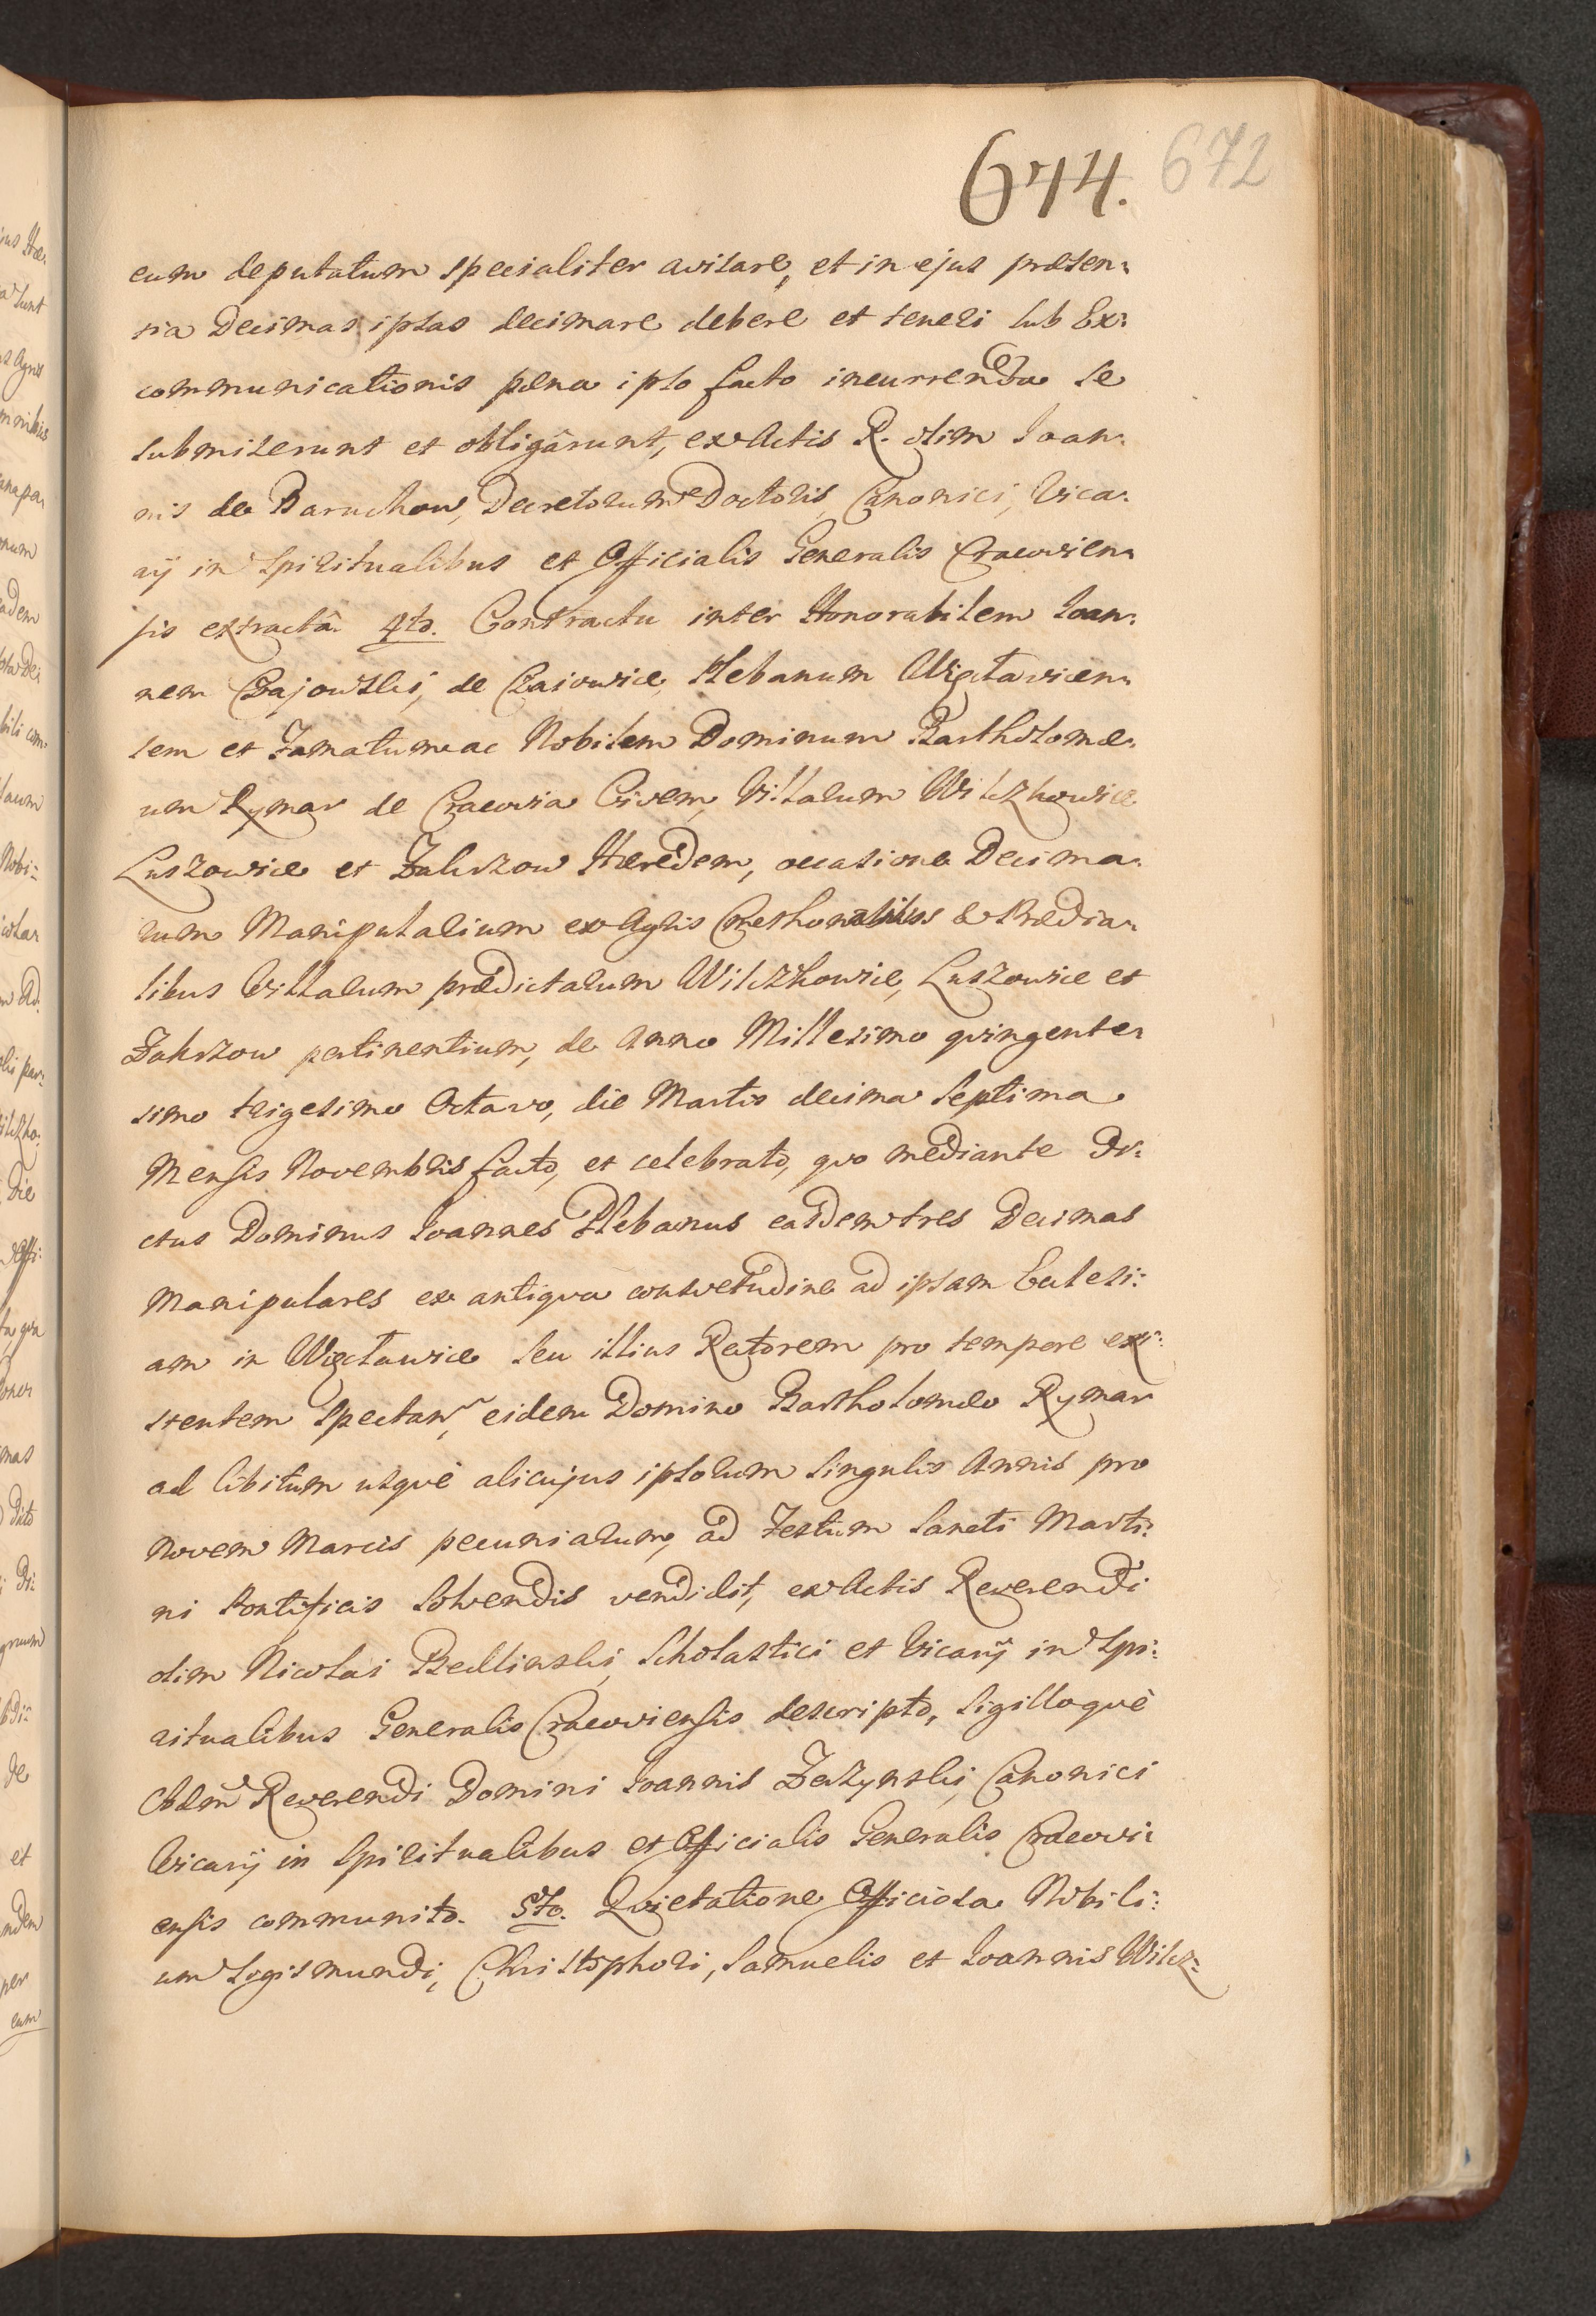 644. 672
eum deputatum specialiter avisare, et in ejus præsen:
tia Decimas ipsas decimare debere et teneri sub Ex:
communicationis pæna ipso facto incurrenda se
submiserunt et obligârunt, ex Actis R. olim Ioan:
nis de Baruchow, Decretorum Doctoris, Canonici, Vica:
rij in Spiritualibus et Officialis Generalis Cracovien:
sis extractâ. 4to. Contractu inter Honorabilem Ioan:
nem Czajowski, de Czaiowice, Plebanum Więcławicen:
sem et Famatum ac Nobilem Dominum Bartholomæ:
um Rymar de Cracovia Civem, Villarum Wilczkowice
Luszowice et Zakrzow Hæredem, occasione Decima:
rum Manipularium ex Agris Cmethonalibus & Prædia:
libus Villarum prædictarum Wilczkowice, Luszowice et
Zakrzow pertinentium, de Anno Millesimo qvingente:
simo trigesimo Octavo, die Martis decima Septima
Mensis Novembris facto, et celebrato, qvo mediante Di:
ctus Dominus Ioannes Plebanus easdem tres Decimas
Manipulares ex antiqva consvetudine ad ipsam Ecclesi:
am in Więcławice seu illius Rectorem pro tempore exi:
stentem spectan, eidem Domino Bartholomæo Rymar
ad libitum usqvè alicujus ipsorum singulis Annis pro
Novem Marcis pecuniarum, ad Festum Sancti Marti:
ni Pontificis solvendis vendidit, ex Actis Reverendi
olim Nicolai Bedlinski, Scholastici et Vicarij in Spi:
ritualibus Generalis Cracoviensis descripto, Sigilloqvè
Adm Reverendi Domini Ioannis Zerzynski, Canonici
Vicarij in Spiritualibus et Officialis Generalis Cracovi:
ensis communito. 5to. Qvietatione Officiosa Nobili:
um Sigismundi, Christophori, Samuelis et Ioannis Wilcz: